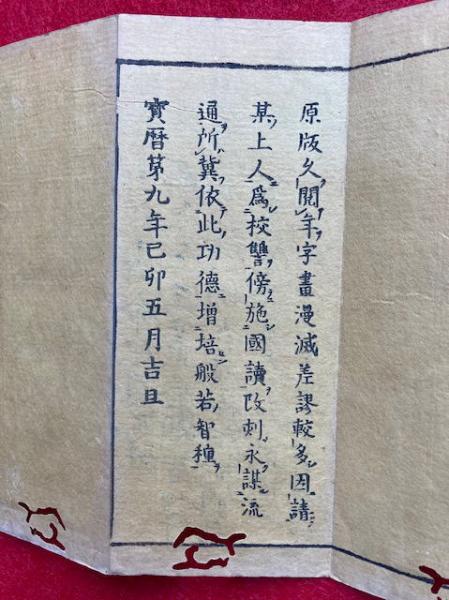 原版久閱年字畫漫滅差謬較多因請
某上人爲校讐傍施國讀改刻永謀流
通所冀依此功德增培般若智種
寳曆第九年己卯五月吉旦